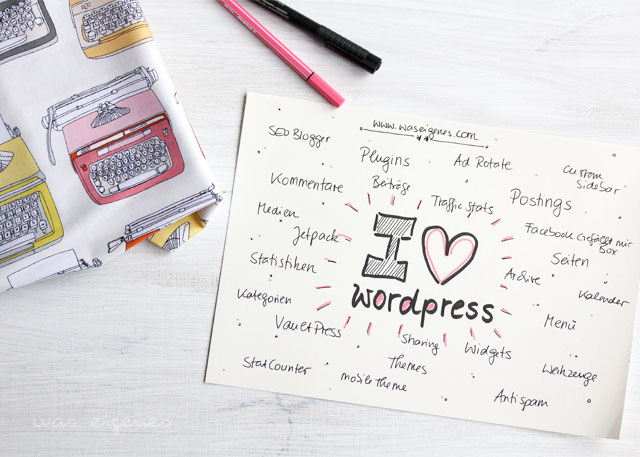 www.waseigenes.com
SEO Blogger
Plugins
Ad Rotate
Custom
Sidebar
Kommentare
Beiträge
Traffic Stats
Postings
Medien
Jetpack
Facebook Gefällt mir
Box
Statistiken
I
Seiten
Archive
Kalender
Kategorien
wordpress
VaultPress
Sharing
Widgets
Menü
StatCounter
Themes
mobile Theme
Werkzeuge
Antispam
was eigenes